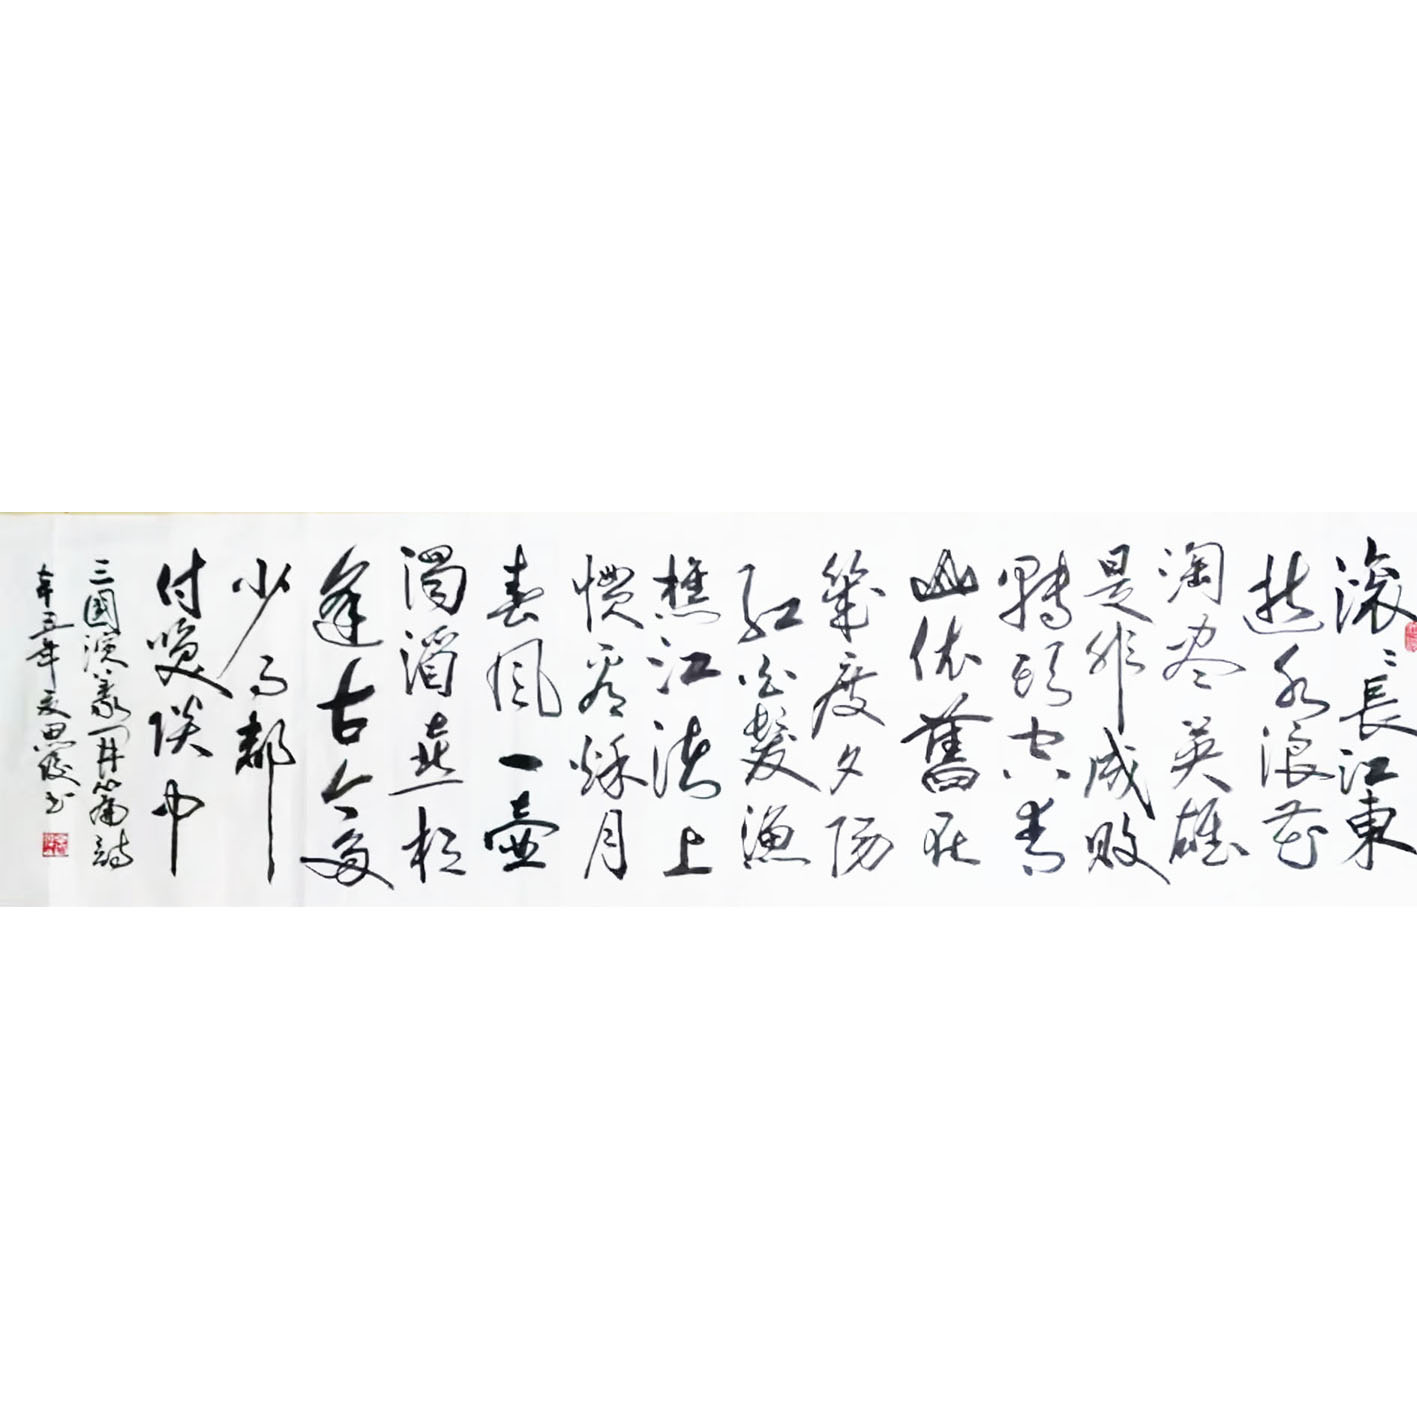 滚〻長江東
逝水浪花
淘尽英雄
是非成敗
轉頭空青
山依舊在
幾度夕陽
紅白髮漁
樵江渚上
惯看秋月
春风一壺
濁酒喜相
逢古今多
少事都
付笑談中
三國演義開篇詩
辛丑年 书